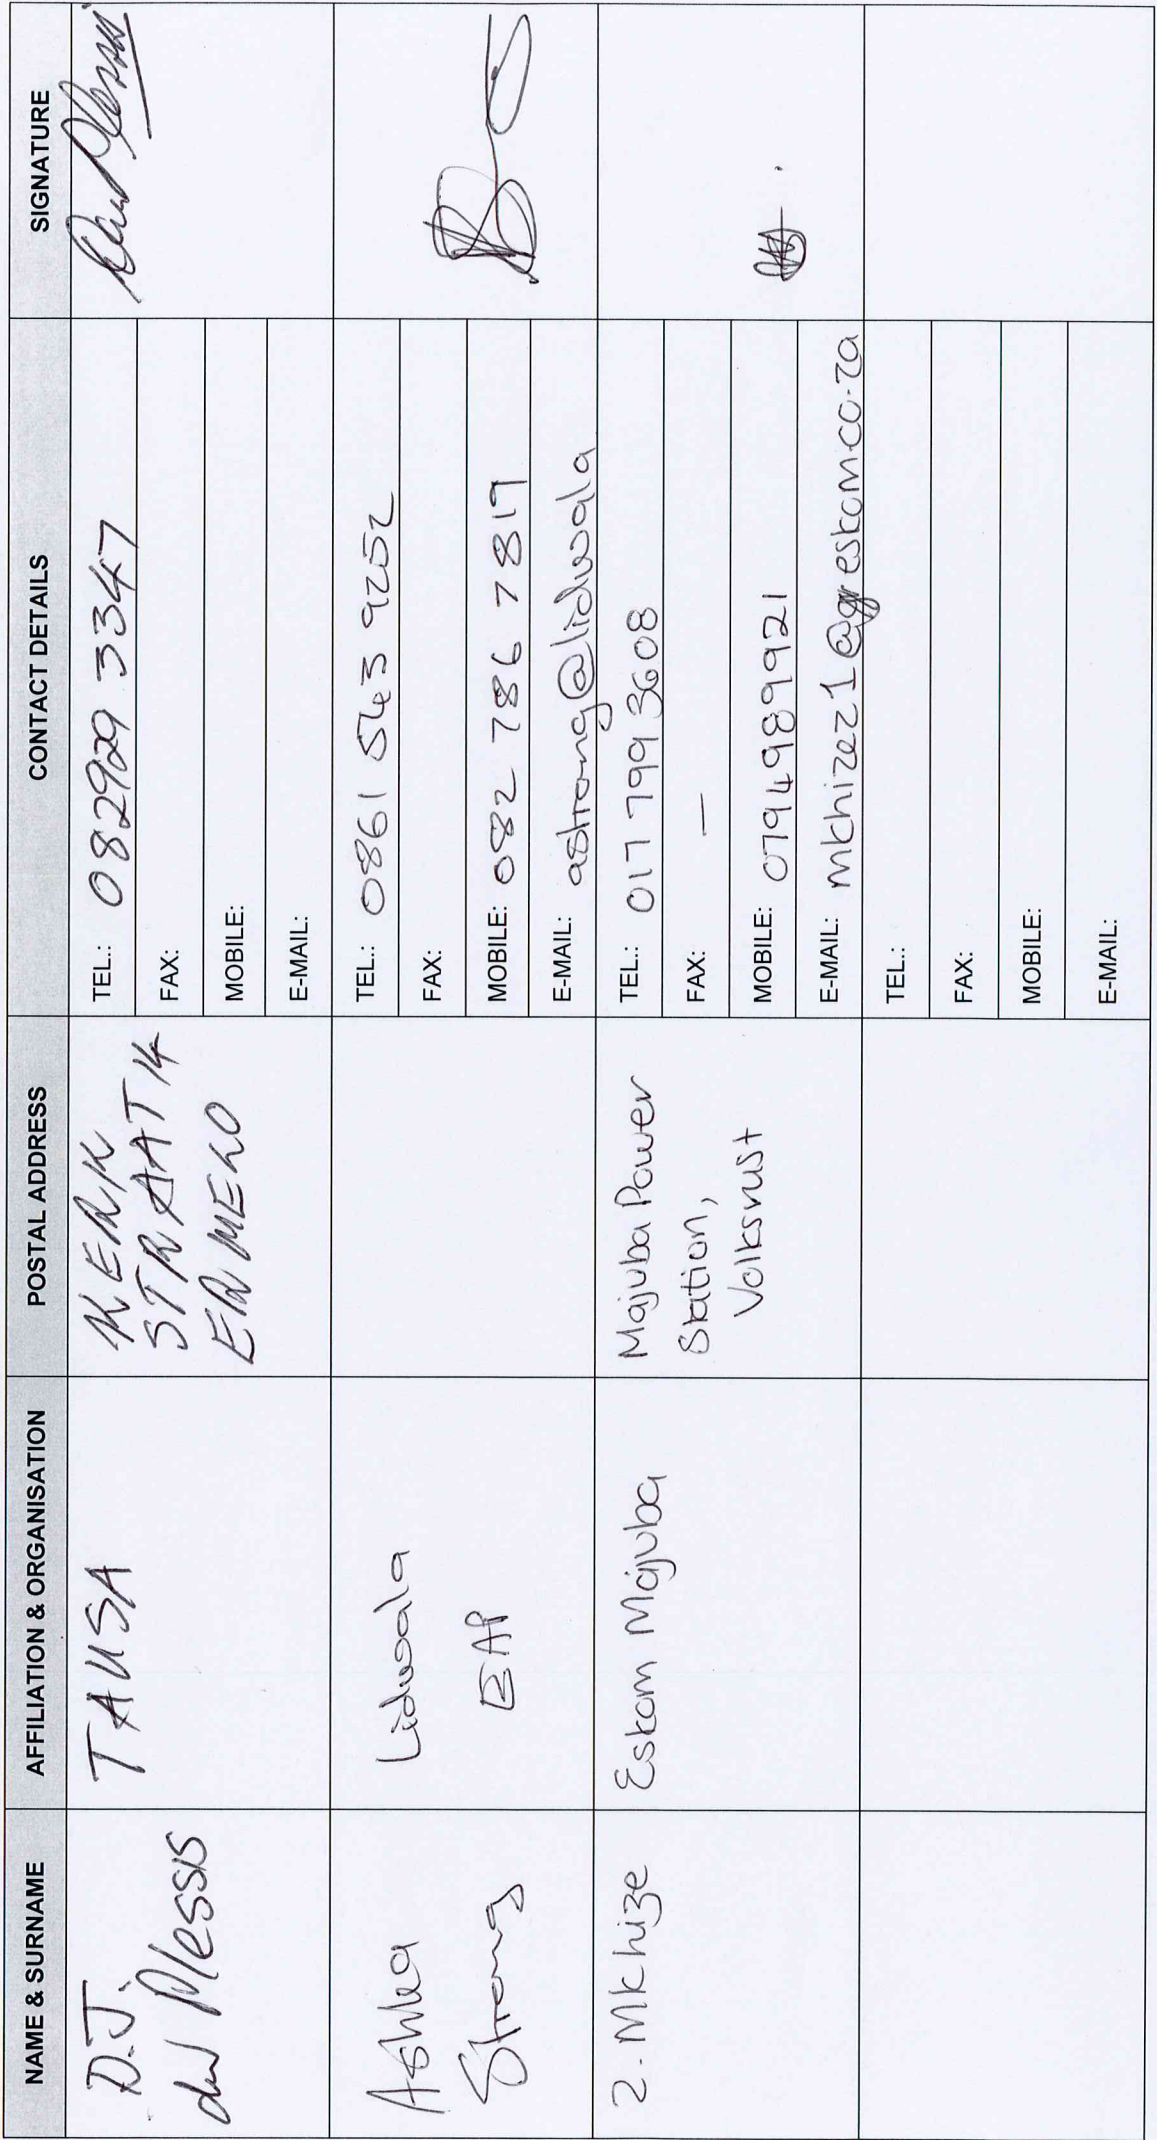 NAME & SURNAME
AFFILIATION & ORGANISATION
POSTAL ADDRESS
CONTACT DETAILS
SIGNATURE
D.J.
du Plessis
TAUSA
KERK
STRAAT 14
ERMELO
TEL.: 082929 3347
FAX:
MOBILE:
E-MAIL:
Ashlea
Strong
Lidwala
EAP
TEL.: 0861 543 9252
FAX:
MOBILE: 082 786 7819
E-MAIL: astrong@lidwala
Z. Mkhize
Eskom Majuba
Majuba Power
Station,
Volksrust
TEL.: 017 799 3608
FAX: —
MOBILE: 0794989921
E-MAIL: mkhizez1@eskom.co.za
TEL.:
FAX:
MOBILE:
E-MAIL: